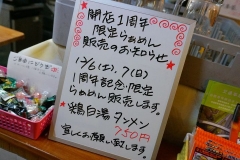 開店1周年
限定らぁめん
販売のお知らせ
12/6(土)、7(日)
1周年記念・限定
らぁめん販売します。
鶏白湯タンメン
750円
宜しくお願い致します。